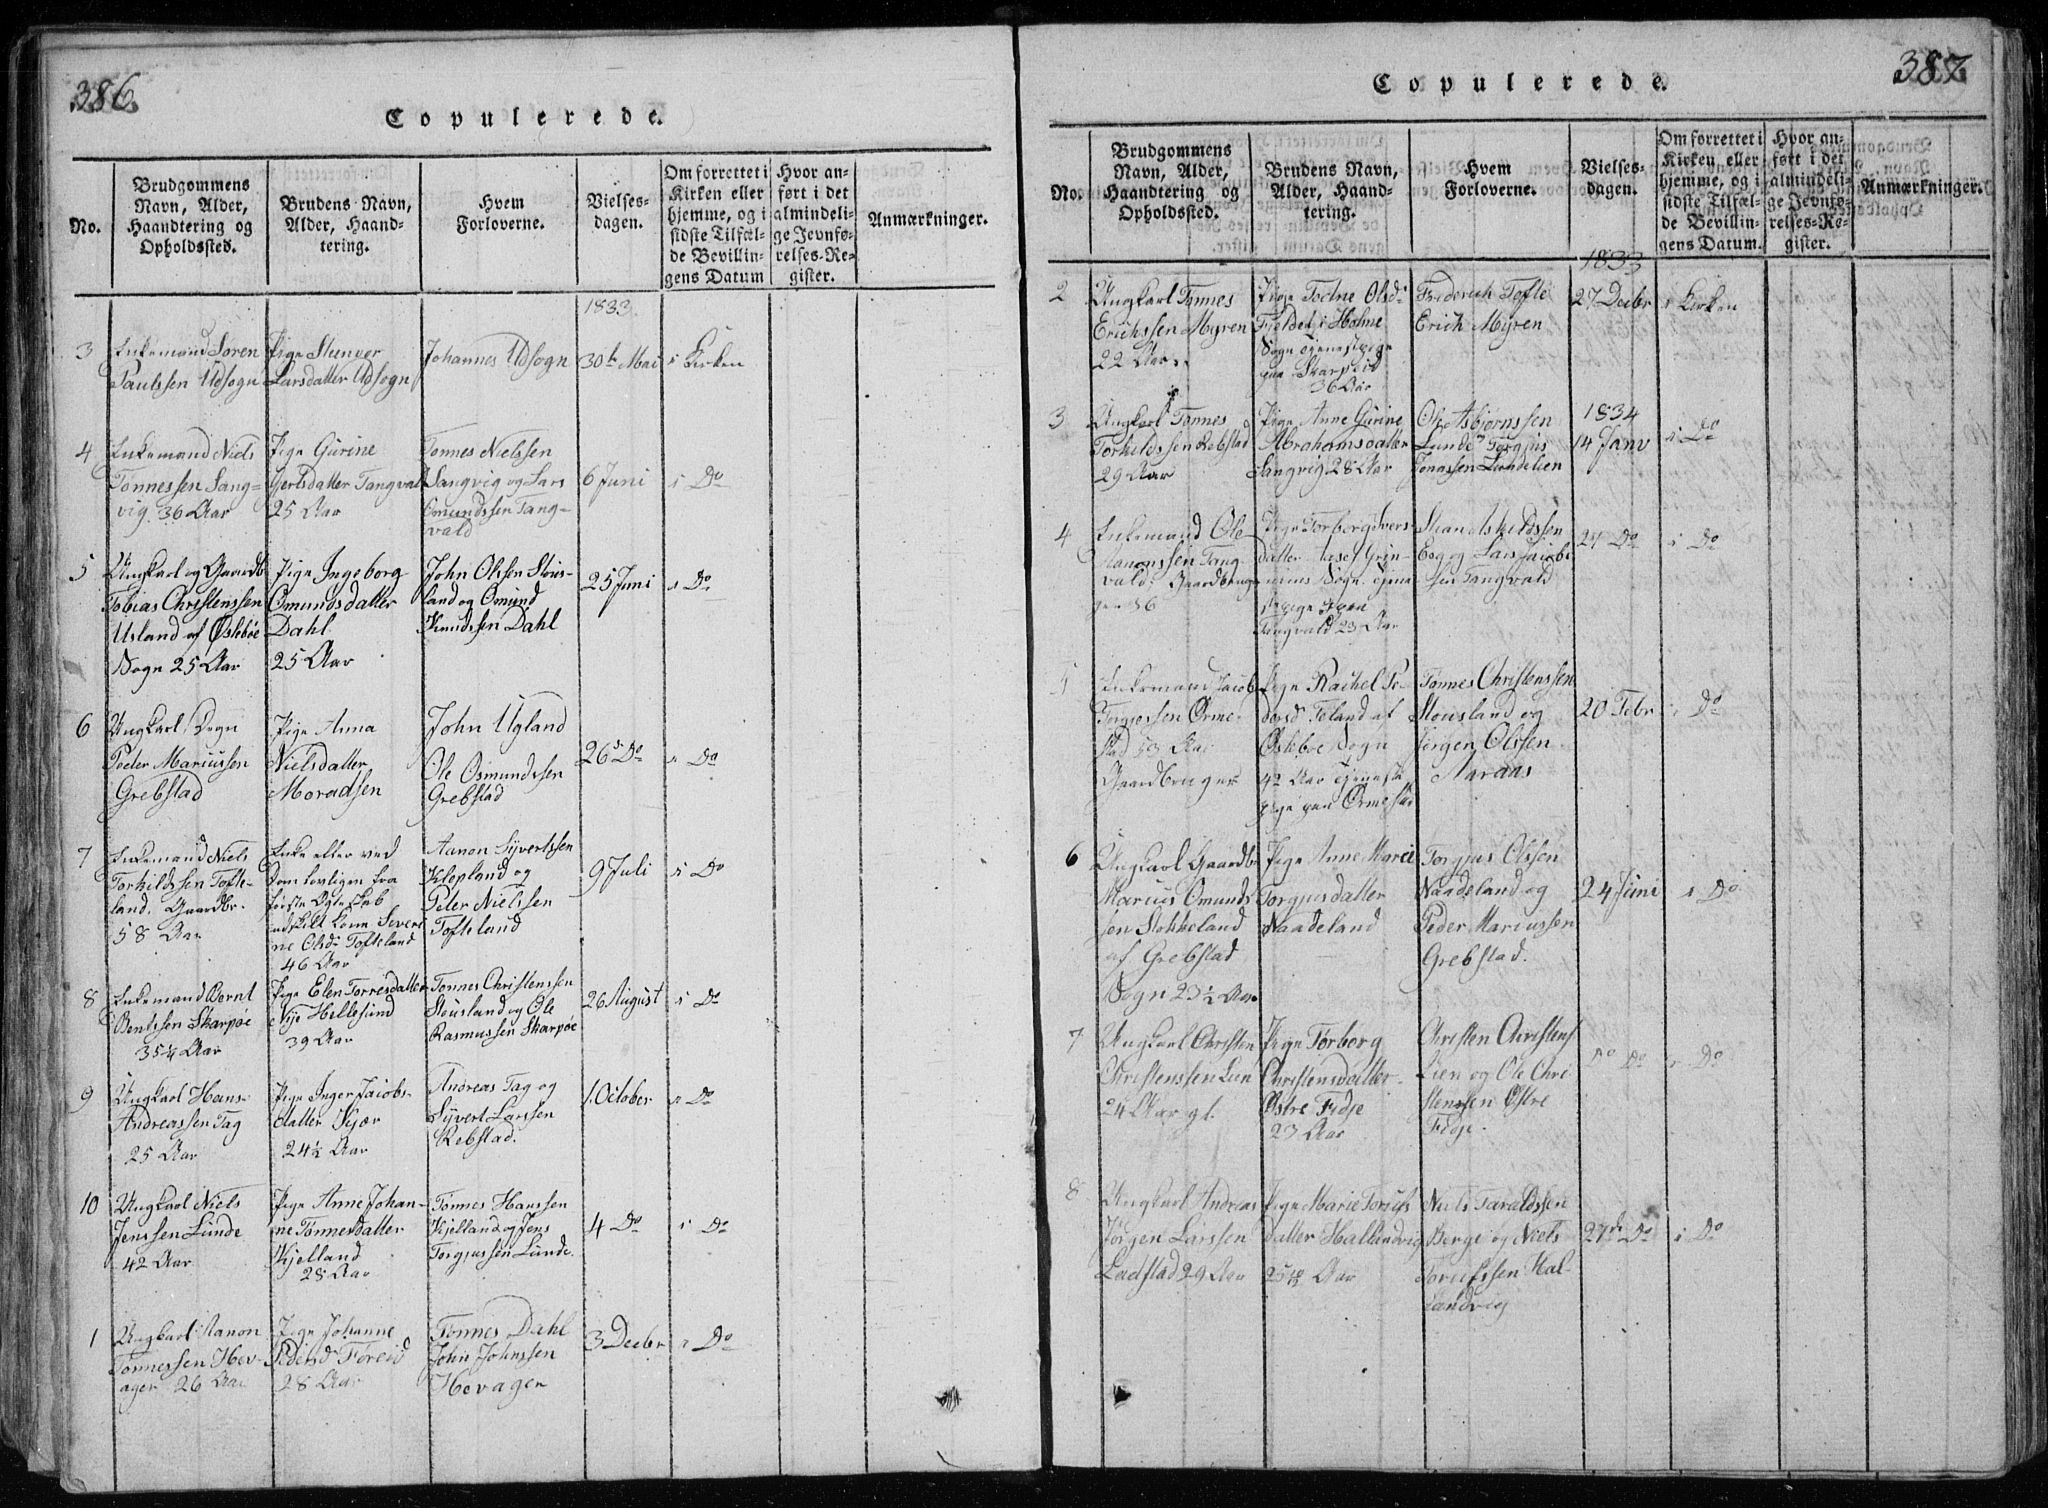 386.
Copulerede.
No.
Brudgommens
Navn, Alder,
Haandtering og
Opholdssted.
Brudens Navn,
Alder, Haand-
tering.
Hvem
Forloverne.
Vielses-
dagen.
Om forrettet i
Kirken eller
hjemme, og i
sidste Tilfæl-
de Bevillin-
gens Datum
Hvor an-
ført i det
almindeli-
ge Jevnfø-
relses-Re-
gister.
Anmærkninger.
1833
3
Enkemand Søren
Paulssen Udsogn
Pige
Larsdatter Udsogn
Johannes Udsogn
30te Mai
i Kirken
4
Enkemand Niels
Tønnessen Sang-
vig. 36 Aar
Pige Gurine
Gjertsdatter Tangvald
25 Aar
Tønnes Nielssen
Sangvig og Lars
Omundssen Tang-
vald
6 Juni
i Do
5
Ungkarl og Gaardb
Tobias Christenssen
Usland af Øslebøe
Sogn 25 Aar
Pige Ingeborg
Omundsdatter
Dahl
25 Aar
John Olssen Stous-
land og Omund
Knudssen Dahl
25 Juni
i Do
6
Ungkarl, Degn
Peder Mariussen
Grebstad
Pige Anna
Nielsdatter
Moradsen
John Ugland
Ole Osmundssen
Grebstad
26 Do
i Do
7
Enkemand Niels
Torkildssen Tofte-
land. Gaardbr.
58 Aar
Enke eller ved
Dom lovligen fra
første Ægteskab
adskilt Kone Severi
ne Olsd Tofteland
46 Aar
Aanon Sijvertssen
Klepland og
Peter Nielssen
Tofteland
9 Juli
i Do
8
Enkemand Bernt
Bentssen Skarpøe
35¼ Aar
Pige Elen Torresdatter
Nije Hellesund
39 Aar
Tønnes Christenssen
Stousland og Ole
Rasmussen Skarpøe
26 August
i Do
9
Ungkarl Hans
Andreassen Tag
25 Aar
Pige Inger Jacobs-
datter Kjær
24½ Aar
Andreas Tag og
Sijvert Larssen
Rebstad.
1. October
i Do
10
Ungkarl Niels
Jenssen Lunde
42 Aar
Pige Anne Johan-
ne Tønnesdatter
Kjelland
28 Aar
Tønnes Hanssen
Kjelland og Jens
Torgjussen Lunde.
4 Do
i Do
1
Ungkarl Aanon
Tønnessen Hev-
ager 26 Aar
Pige Johanne
Pedersd Foreid
28 Aar
Tønnes Dahl
John Johnssen
Hevagen
3 Decbr
i Do
387.
Copulerede.
No.
Brudgommens
Navn, Alder,
Haandtering og
Opholdssted.
Brudens Navn,
Alder, Haand-
tering.
Hvem
Forloverne.
Vielses-
dagen.
Om forrettet i
Kirken eller
hjemme, og i
sidste Tilfæl-
de Bevillin-
gens Datum.
Hvor an-
ført i det
almindeli-
ge Jevnfø-
relses-Re-
gister.
Anmærkninger.
1833
2
Ungkarl Tønnes
Erichssen Myren
22 Aar.
Pige Todne Olsd
Fjeldet i Holme
Sogn Tjenestpige
paa Skarpeid
36 Aar
Friderich Tofte
Erich Myren
27 Decbr
i Kirken
3
Ungkarl Tønnes
Torkildssen Rebstad
29 Aar
Pige Anne Gurine
Abrahamsdatter
Sangvig 28 Aar
Ole Asbjørnssen
Lunde Torgjus
Jonassen Lundelien
1834
14 Janv
i Do
4
Enkemand Ole
Aanonssen Tang
vald. Gaardbruger
36
Pige Torborg Sivers
datter
Sogn. tjene
stepige paa
Tangvald 23 Aar
Eeg og Lars Jacobs
sen Tangvald
24 Do
i Do
5
Enkemand Jacob
Torgjussen Orme-
stad 53 Aar
Gaardbruger
Pige Rachel Pe-
dersd Foland af
Øslebøe Sogn
42 Aar Tjeneste
pige paa Ormestad
Tønnes Christenssen
Stousland og
Jørgen Olssen
Aaraas
20 Febr
i Do
6
Ungkarl Gaardbr
Marius Omunds
sen Stokkeland
af Grebstad
Sogn 23½ Aar
Pige Anne Marei
Torgjusdatter
Naadeland
Torgjus Olssen
Naadeland og
Peder Mariussen
Grebstad.
24 Juni
i Do
7
Ungkarl Christen
Christenssen Lien
24 Aar gl.
Pige Torborg
Christensdatter
Østre Fidje
23 Aar
Christen Christens
Lien og Ole Chri
stenssen Østre
Fidje.
Do Do
i Do
8
Ungkarl Andreas
Jørgen Larssen
Ladstad 29 Aar
Pige Marie Torjus
datter Hallandvig
Aar
Niels Taraldssen
Berge og Niels
Torjussen Hal-
landvig
27de Do
i Do